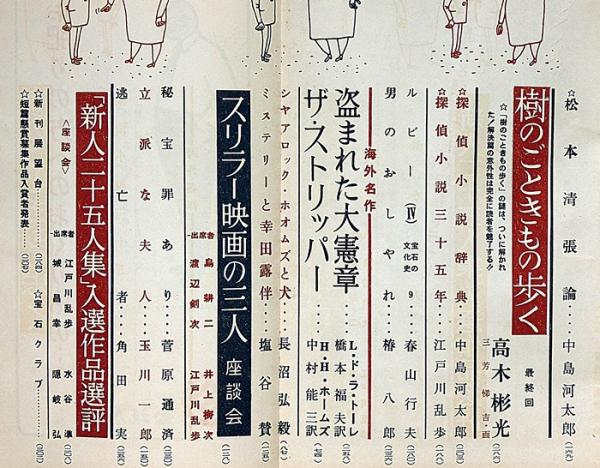 ☆松本清張論…中島河太郎
樹のごときもの歩く 最終回 高木彬光
☆「樹のごときもの歩く」の謎は、ついに解かれた!解決篇の意外性は完全に読者を魅了する!!
三芳悌吉・画
☆探偵小説辞典…中島河太郎
☆探偵小説三十五年…江戸川乱歩
ルビー(Ⅳ) 宝石の文化史9…春山行夫
男のおしゃれ…椿八郎
海外名作
盗まれた大憲章 L・D・ラ・トーレ 橋本福夫訳
ザ・ストリッパー H・H・ホームズ 中村能三訳
シヤアロック・ホオムズと犬…長沼弘毅
ミステリーと幸田露伴…塩谷賛
スリラー映画の三人 座談会
―出席者― 島耕二 井上梅次
渡辺剣次 江戸川乱歩
秘宝罪あり…菅原通済
立派な夫人…玉川一郎
逃亡者…角田実
「新人二十五人集」入選作品選評
<座談会>
―出席者― 江戸川乱歩 水谷準
城昌幸 隠岐弘
☆新刊展望台… ☆宝石クラブ
☆短篇懸賞募集作品入賞者発表…